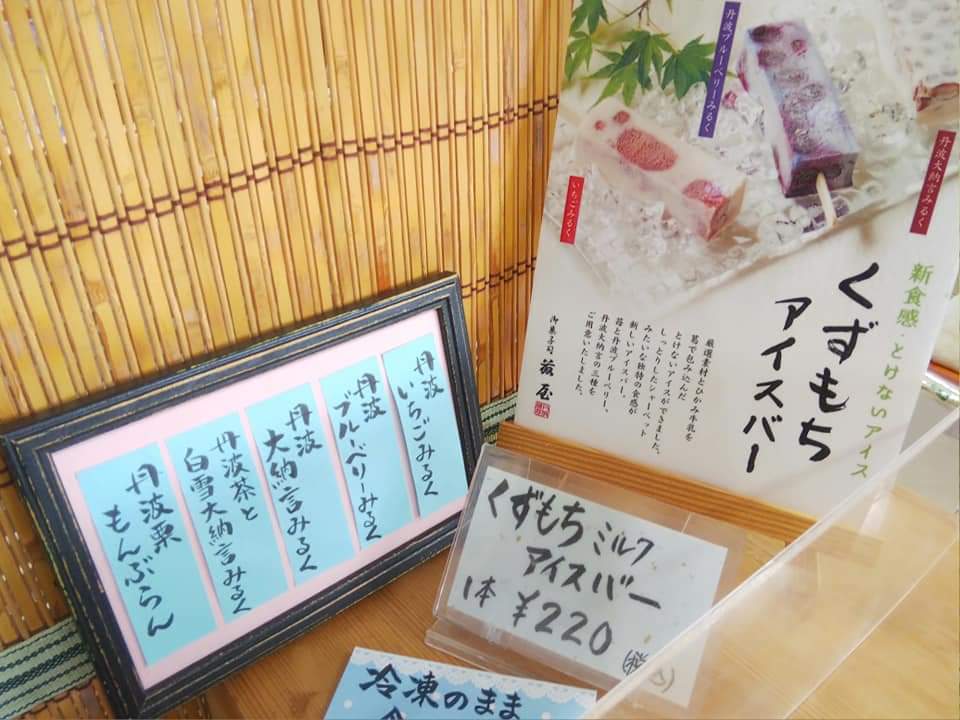 新食感 とけないアイス
くずもち
アイスバー
丹波大納言みるく
丹波ブルーベリーみるく
いちごみるく
厳選素材とひかみ牛乳を
葛で包み込んだ
とけないアイスができました。
しっとりしたシャーベット
みたいな独特の食感が
新しいアイスバー。
苺と丹波ブルーベリー、
丹波大納言の三種を
ご用意いたしました。
御菓子司
丹波
いちごみるく
丹波
ブルーベリーみるく
丹波
大納言みるく
丹波茶と
白雪大納言みるく
丹波栗
もんぶらん
くずもちミルク
アイスバー
1本 ¥220
冷凍のまま